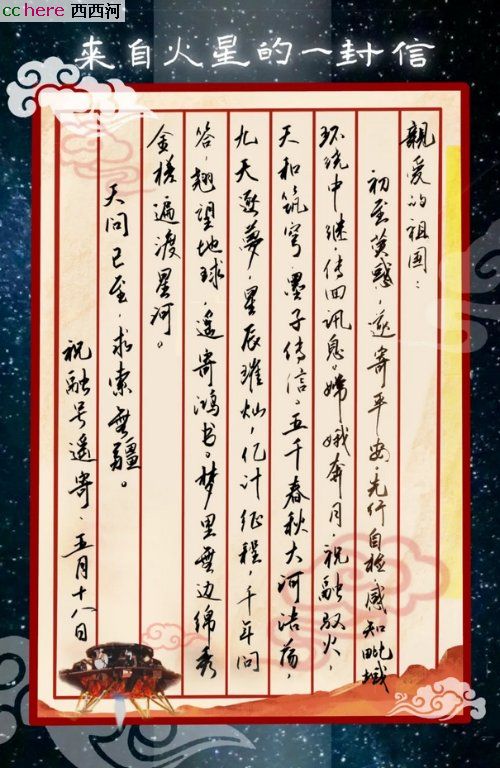 cchere 西西河
来自火星的一封信
親爱的祖国：
初至荧惑，遥寄平安。先行自检，感知毗域
环绕中继传回讯息。嫦娥奔月，祝融驭火，
天和筑穹，墨子传信。五千春秋大河浩荡，
九天逐夢，星辰璀灿，亿计征程，千年问
答，翘望地球，遥寄鸿书。梦里無边锦秀
金槎遍渡星河。
天问已至，求索無疆。
祝融号遥寄、五月十八日